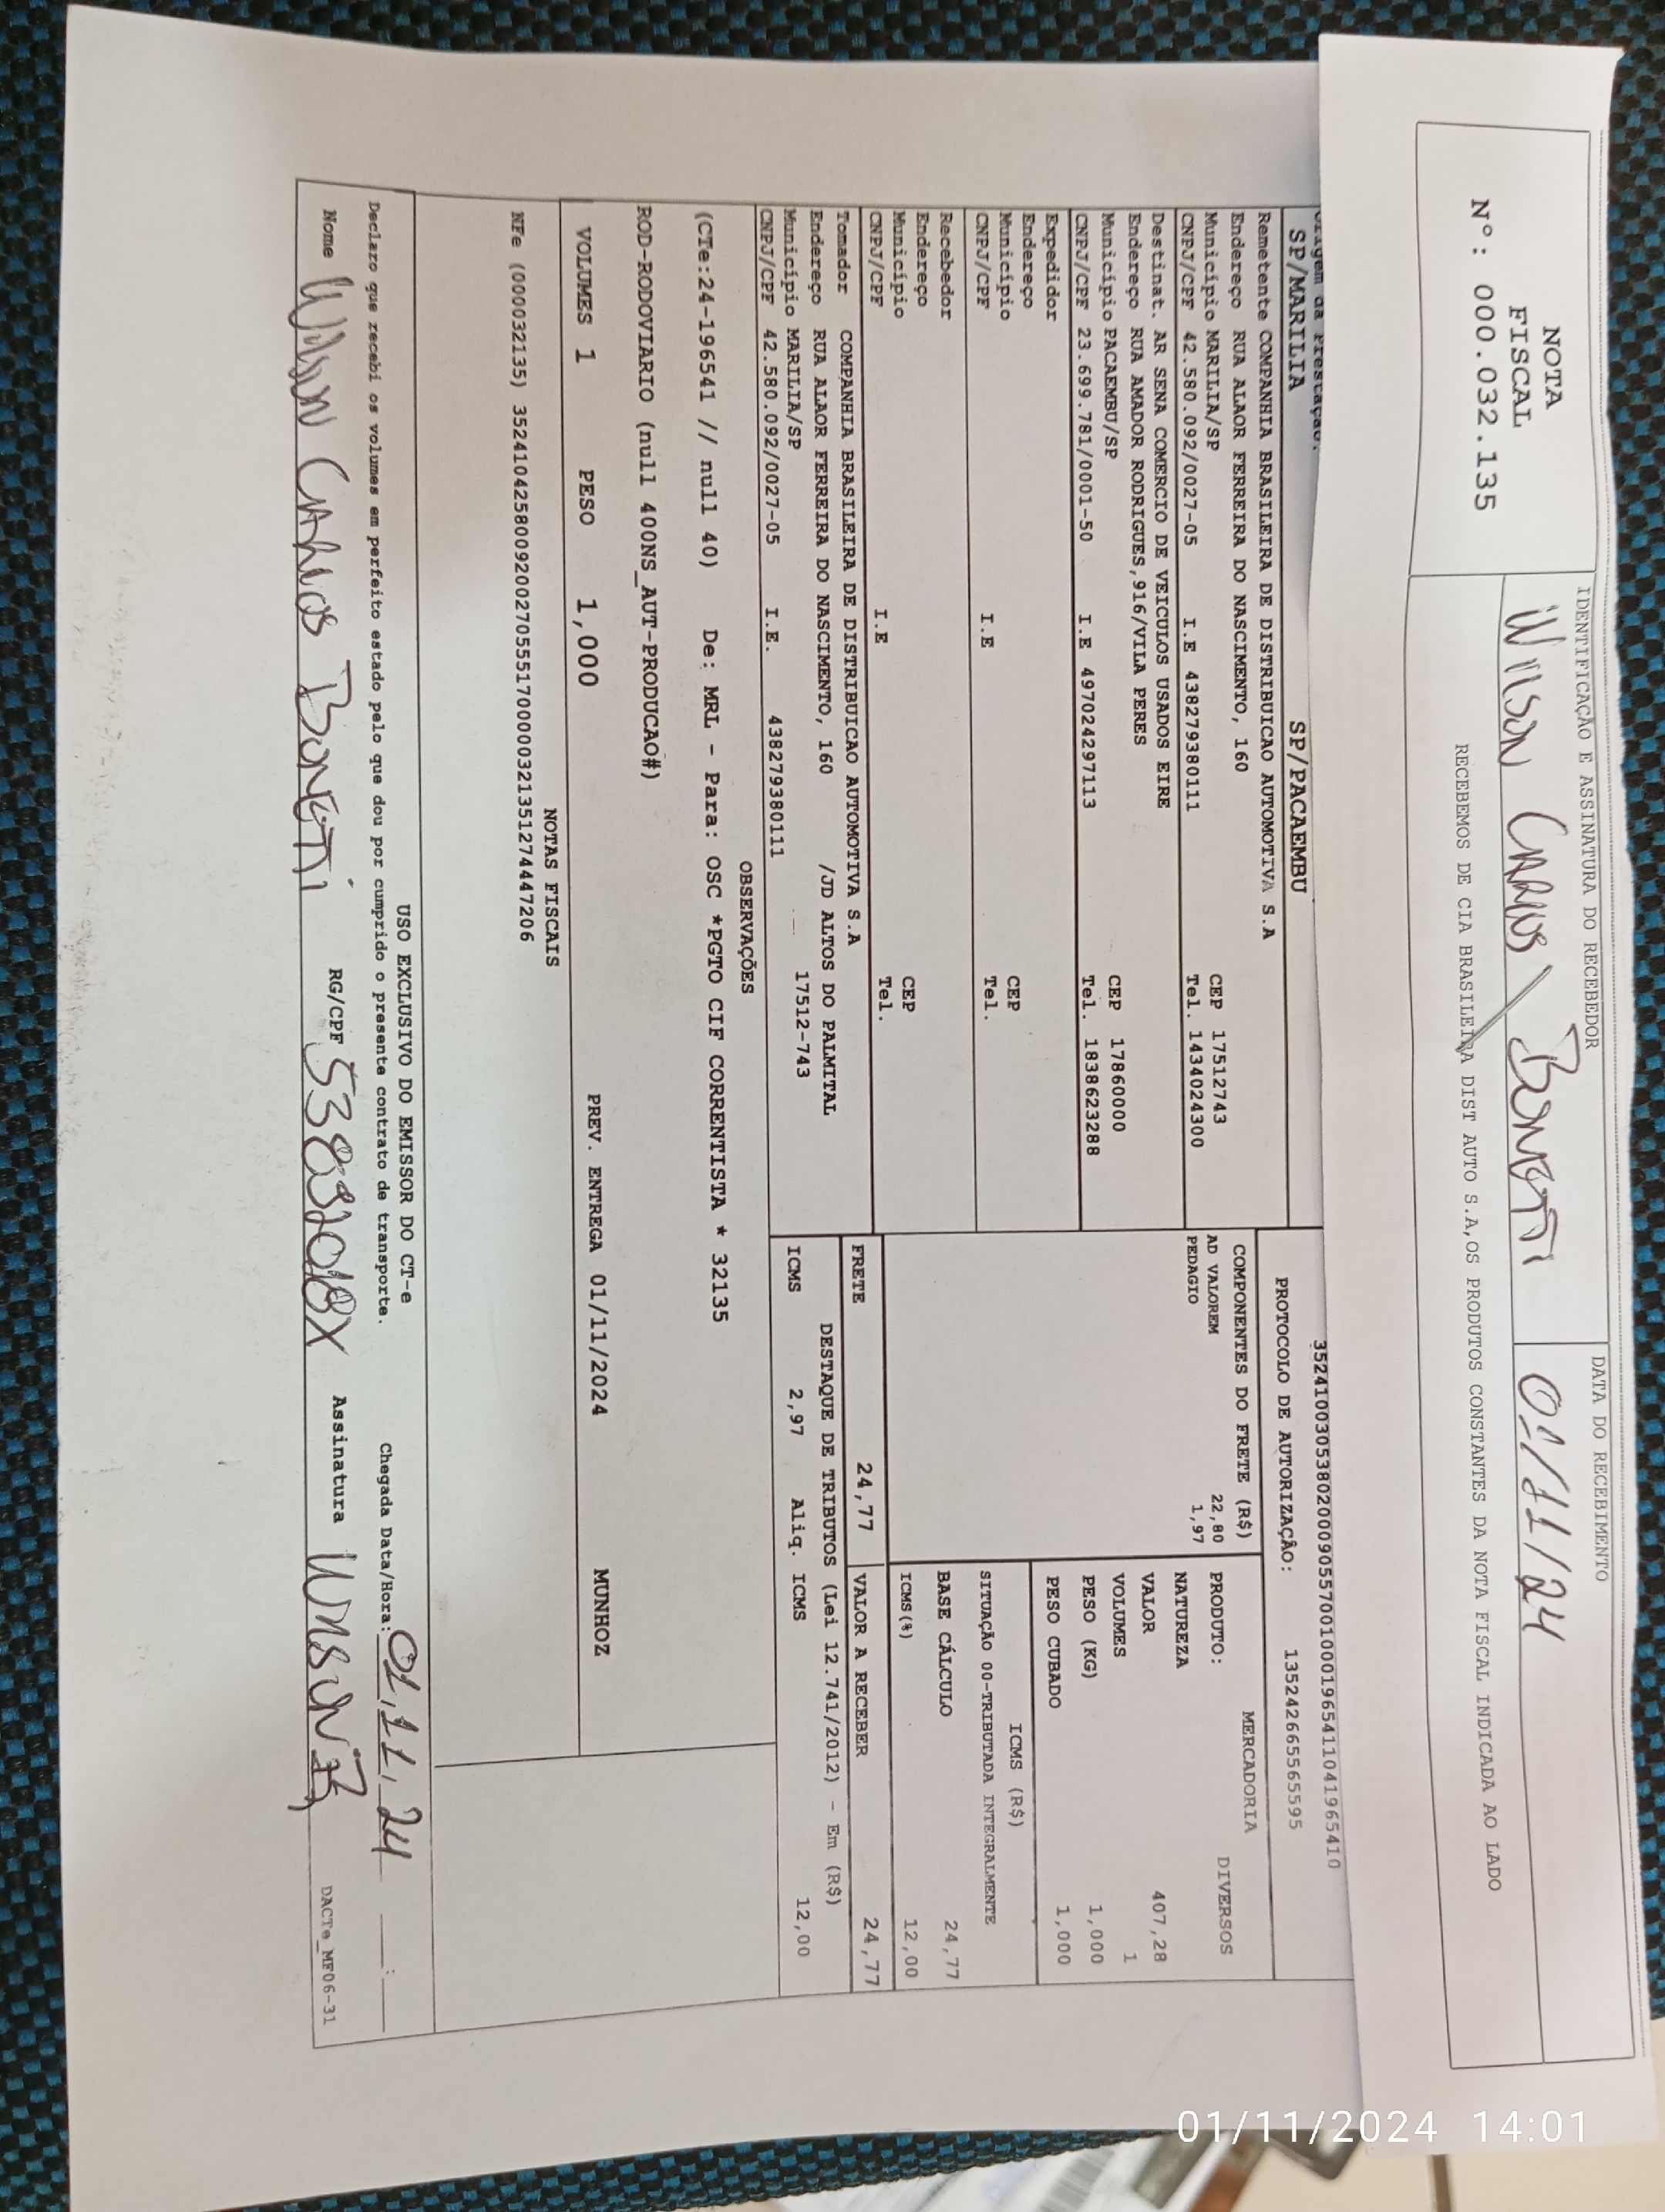 NOTA
FISCAL
Nº: 000.032.135
IDENTIFICAÇÃO E ASSINATURA DO RECEBEDOR
DATA DO RECEBIMENTO
Wilson Carlos Bonetti
01/11/24
RECEBEMOS DE CIA BRASILEIRA DIST AUTO S.A,OS PRODUTOS CONSTANTES DA NOTA FISCAL INDICADA AO LADO
Origem da Prestação:
SP/MARILIA SP/PACAEMBU
Remetente COMPANHIA BRASILEIRA DE DISTRIBUICAO AUTOMOTIVA S.A
Endereço RUA ALAOR FERREIRA DO NASCIMENTO, 160
Município MARILIA/SP CEP 17512743
CNPJ/CPF 42.580.092/0027-05 I.E 438279380111 Tel. 1434024300
Destinat. AR SENA COMERCIO DE VEICULOS USADOS EIRE
Endereço RUA AMADOR RODRIGUES,916/VILA PERES
Município PACAEMBU/SP CEP 17860000
CNPJ/CPF 23.699.781/0001-50 I.E 497024297113 Tel. 1838623288
Expedidor
Endereço
Município CEP
CNPJ/CPF I.E Tel.
Recebedor
Endereço
Município CEP
CNPJ/CPF I.E Tel.
Tomador COMPANHIA BRASILEIRA DE DISTRIBUICAO AUTOMOTIVA S.A
Endereço RUA ALAOR FERREIRA DO NASCIMENTO, 160 /JD ALTOS DO PALMITAL
Município MARILIA/SP 17512-743
CNPJ/CPF 42.580.092/0027-05 I.E. 438279380111
35241003053802000905570010001965411041965410
PROTOCOLO DE AUTORIZAÇÃO: 135242665565595
COMPONENTES DO FRETE (R$)
AD VALOREM 22,80
PEDAGIO 1,97
MERCADORIA
PRODUTO: DIVERSOS
NATUREZA
VALOR 407,28
VOLUMES 1
PESO (KG) 1,000
PESO CUBADO 1,000
ICMS (R$)
SITUAÇÃO 00-TRIBUTADA INTEGRALMENTE
BASE CÁLCULO 24,77
ICMS(%) 12,00
FRETE 24,77 VALOR A RECEBER 24,77
DESTAQUE DE TRIBUTOS (Lei 12.741/2012) - Em (R$)
ICMS 2,97 Aliq. ICMS 12,00
OBSERVAÇÕES
(CTe:24-196541 // null 40) De: MRL - Para: OSC *PGTO CIF CORRENTISTA * 32135
ROD-RODOVIARIO (null 400NS_AUT-PRODUCAO#)
VOLUMES 1 PESO 1,000 PREV. ENTREGA 01/11/2024 MUNHOZ
NOTAS FISCAIS
NFe (000032135) 35241042580092002705551700000321351274447206
USO EXCLUSIVO DO EMISSOR DO CT-e
Declaro que recebi os volumes em perfeito estado pelo que dou por cumprido o presente contrato de transporte. Chegada Data/Hora: 01/11/24 __:__
Nome Wilson Carlos Bonetti RG/CPF Assinatura Wilson B,
DACTe_MF06-31
01/11/2024 14:01